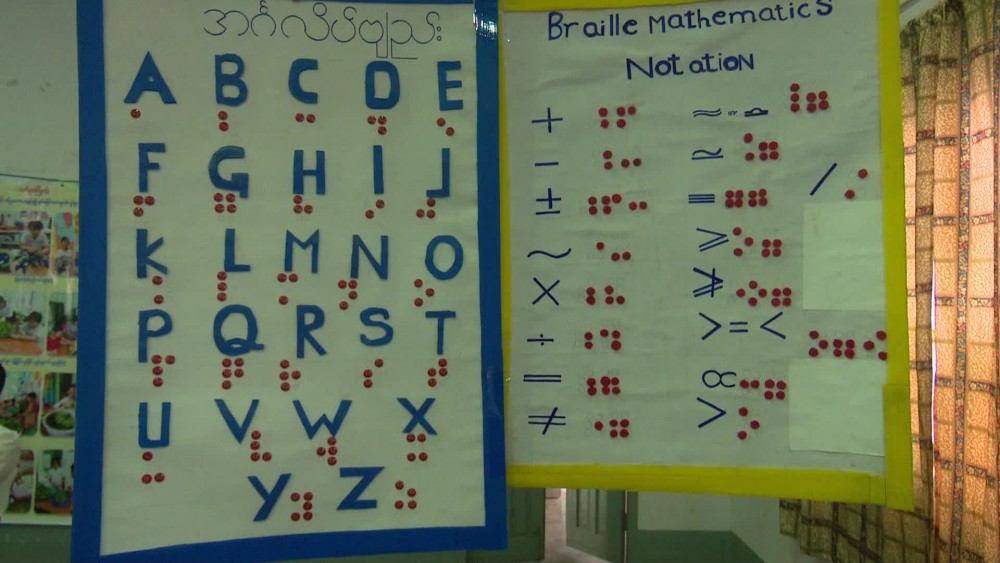 အင်္ဂလိပ်ဗျည်း
A B C D E
F G H I J
K L M N O
P Q R S T
U V W X
Y Z
Braille Mathematics
Notation
+
−
±
∼
×
÷
=
≠
≈ or ≏
≃
≡
/
⩾
>=<
∝
>